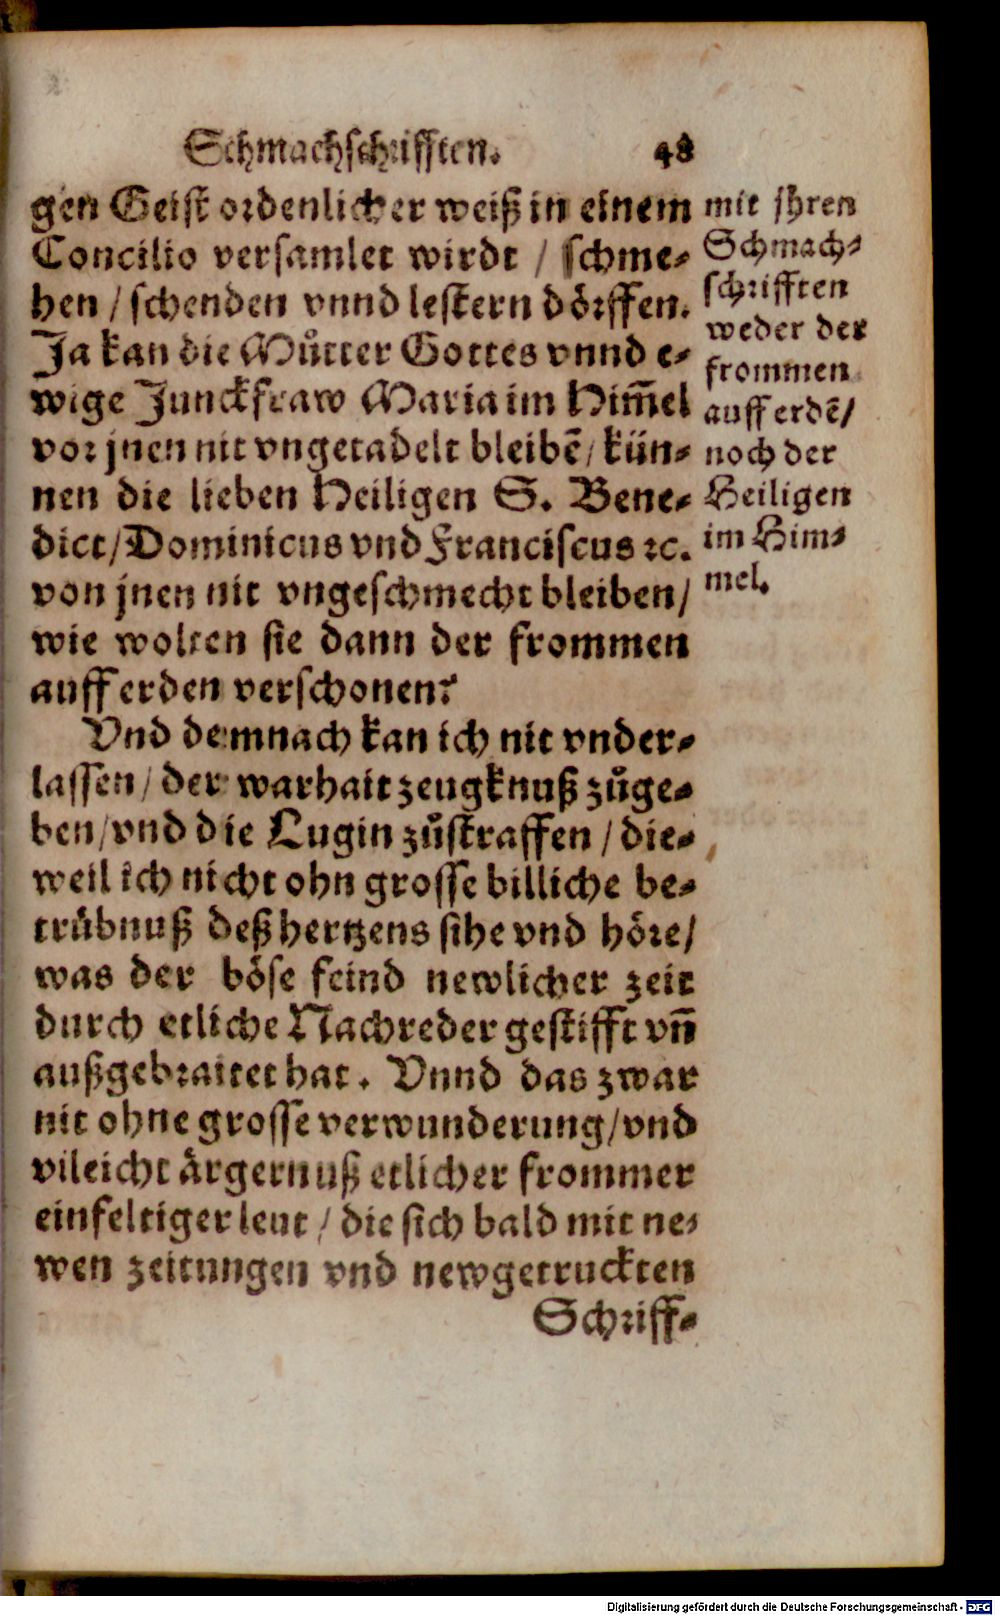 Schmachschrifften. 48
gen Geist ordenlicher weiß in einem
Concilio versamlet wirdt / schme-
hen / schenden vnnd lestern dörffen.
Ja kan die Můtter Gottes vnnd e-
wige Junckfraw Maria im Him̃el
vor jnen nit vngetadelt bleibẽ / kün-
nen die lieben Heiligen S. Bene-
dict / Dominicus vnd Franciscus ꝛc.
von jnen nit vngeschmecht bleiben /
wie wolten sie dann der frommen
auff erden verschonen?
Vnd demnach kan ich nit vnder-
lassen / der warhait zeugknuß zůge-
ben / vnd die Lugin zůstraffen / die-
weil ich nicht ohn grosse billiche be-
trübnuß deß hertzens sihe vnd höre /
was der böse feind newlicher zeit
durch etliche Nachreder gestifft vñ
außgebraitet hat. Vnnd das zwar
nit ohne grosse verwunderung / vnd
vileicht ärgernuß etlicher frommer
einfeltiger leut / die sich bald mit ne-
wen zeitungen vnd newgetruckten
Schriff-
mit jhren
Schmach-
schrifften
weder der
frommen
auff erdẽ /
noch der
Heiligen
im Him-
mel.
Digitalisierung gefördert durch die Deutsche Forschungsgemeinschaft - DFG